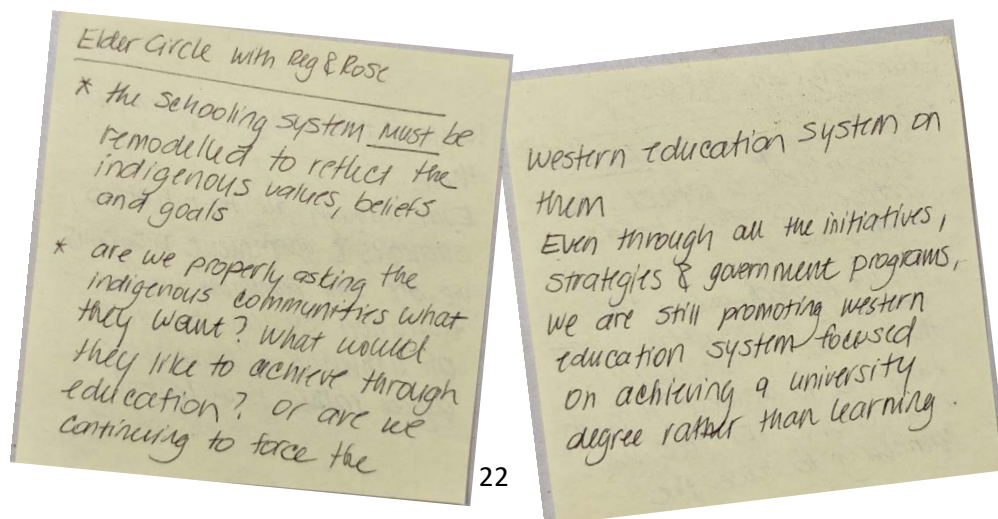 Elder Circle with Reg & Rose
* the schooling system must be
remodelled to reflect the
indigenous values, beliefs
and goals
* are we properly asking the
indigenous communities what
they want? What would
they like to achieve through
education? or are we
continuing to force the
western education system on
them
Even through all the initiatives,
strategies & government programs,
we are still promoting western
education system focused
on achieving a university
degree rather than learning.
22